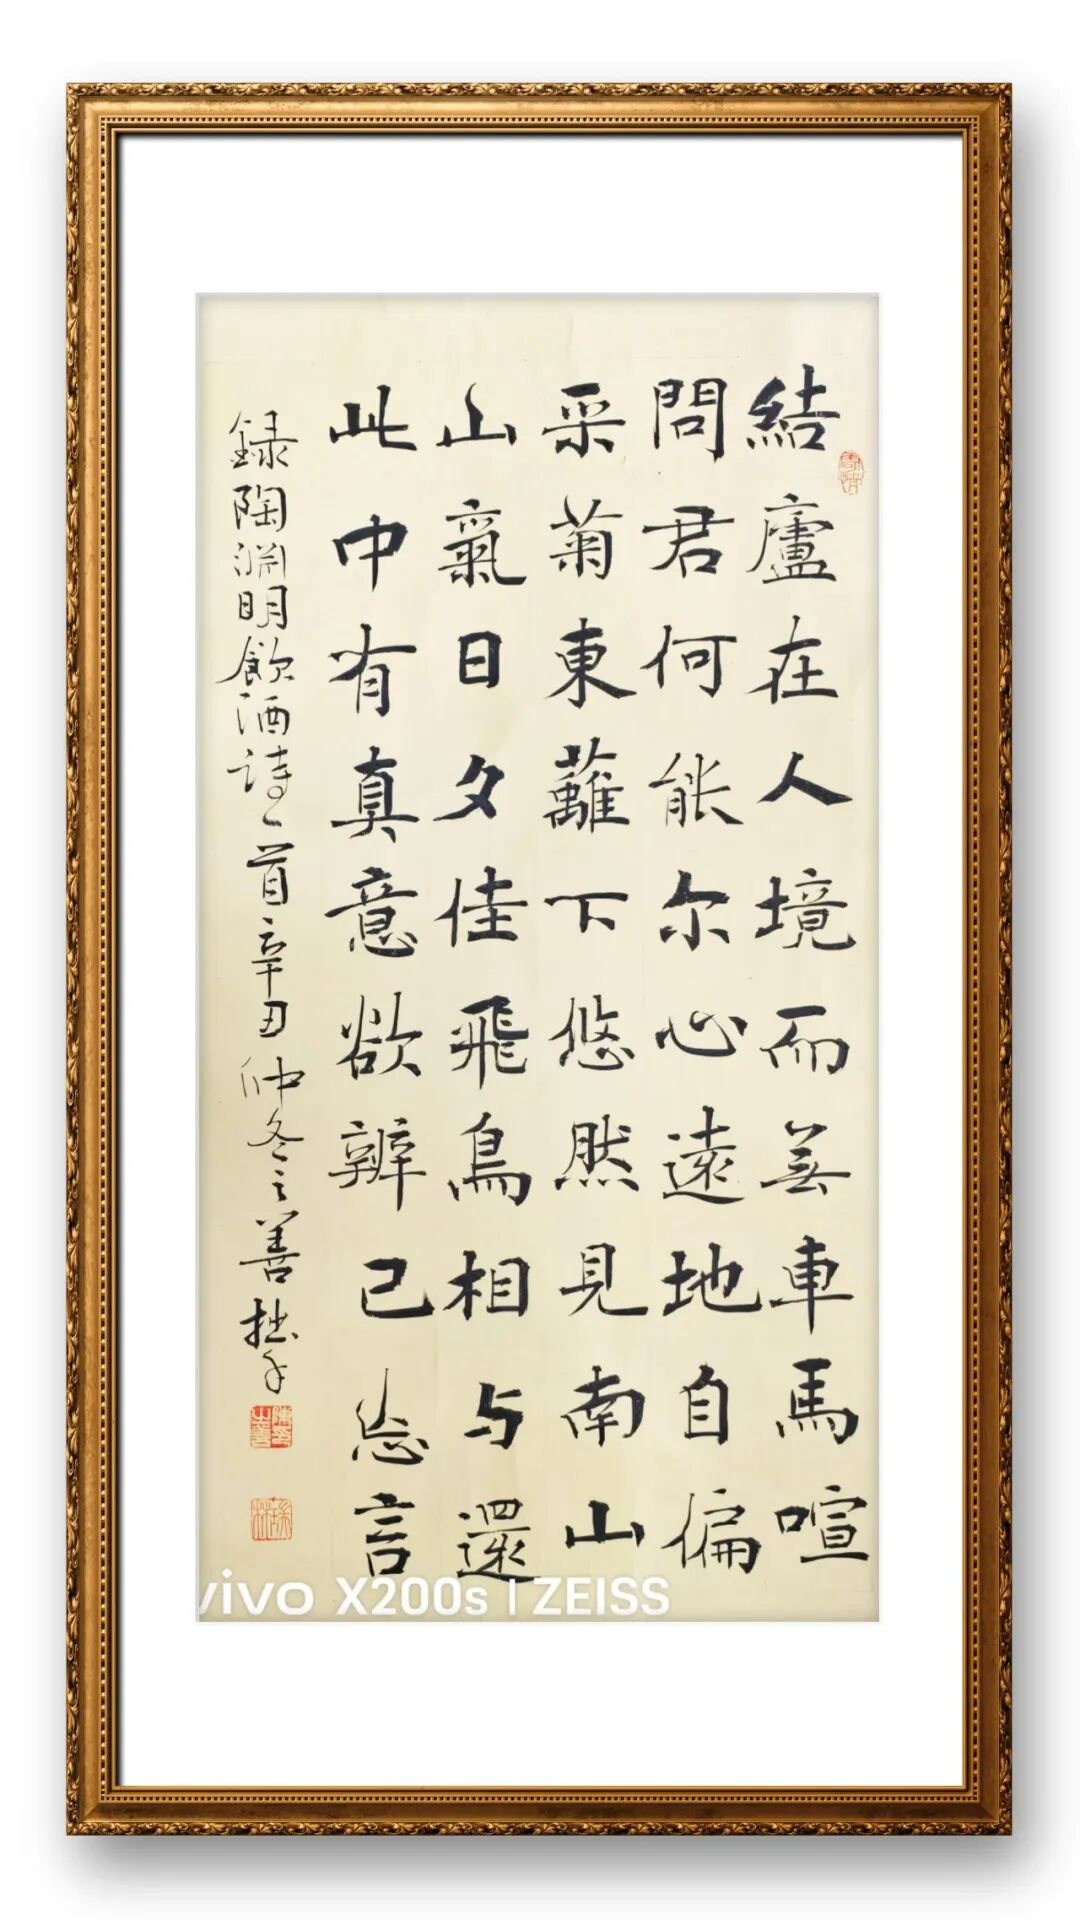 結廬在人境而無車馬喧
問君何能尔心遠地自偏
采菊東蘺下悠然見南山
山氣日夕佳飛鳥相与還
此中有真意欲辨已忘言
録陶淵明飲酒詩一首辛丑仲冬之善拙手
vivo X200s | ZEISS